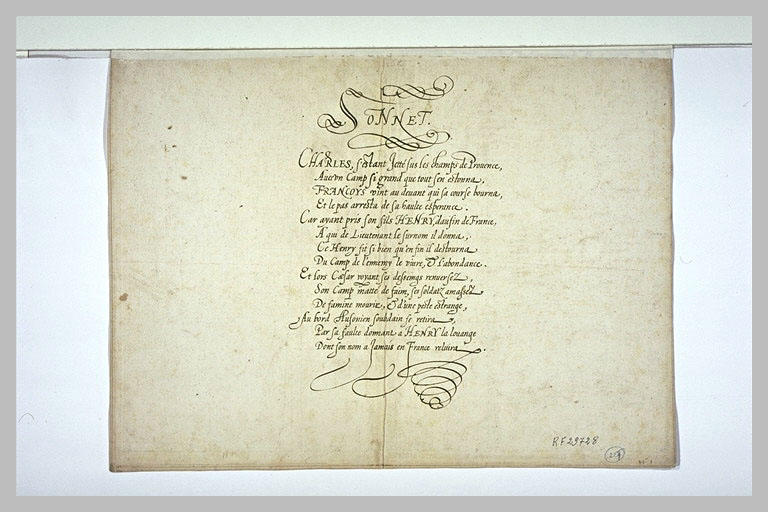 SONNET.
CHARLES, s'estant Jetté sus les champs de Prouence,
Auec vn Camp si grand que tout s'en estonna,
FRANCOYS vint au deuant qui sa course bourna,
Et le pas arresta de sa haulte esperance.
Car ayant pris son fils HENRY, daufin de France,
A qui de Lieutenant le surnom il donna,
Ce Henry fit si bien qu'en fin il destourna
Du Camp de l'ennemy le viure, & l'abondance.
Et lors Cæsar voyant ses desseings renuersez,
Son Camp matté de faim, ses soldatz amassez
De famine mourir, & d'une peste estrange,
Au bord Ausonien soubdain se retira,
Par sa faulte donnant a HENRY la louange
Dont son nom a Jamais en France reluira.
RF 29728